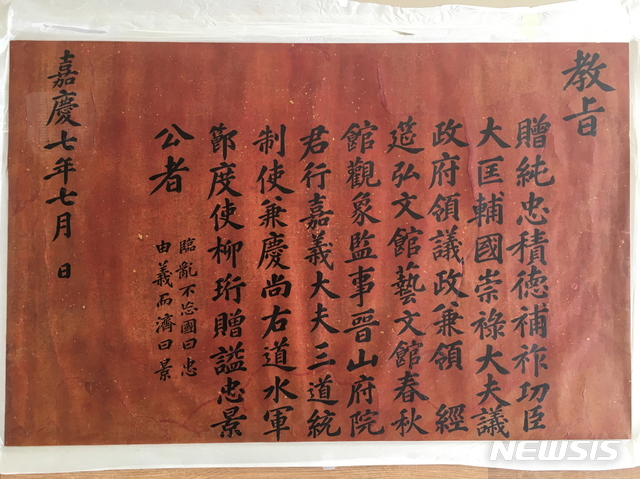 教旨
贈純忠積德補祚功臣
大匡輔國崇祿大夫議
政府領議政兼領 經
筵弘文館藝文館春秋
館觀象監事晉山府院
君行嘉義大夫三道統
制使兼慶尚右道水軍
節度使柳珩贈謚忠景
公者
臨亂不忘國曰忠
由義而濟曰景
嘉慶七年七月 日
NEWSIS